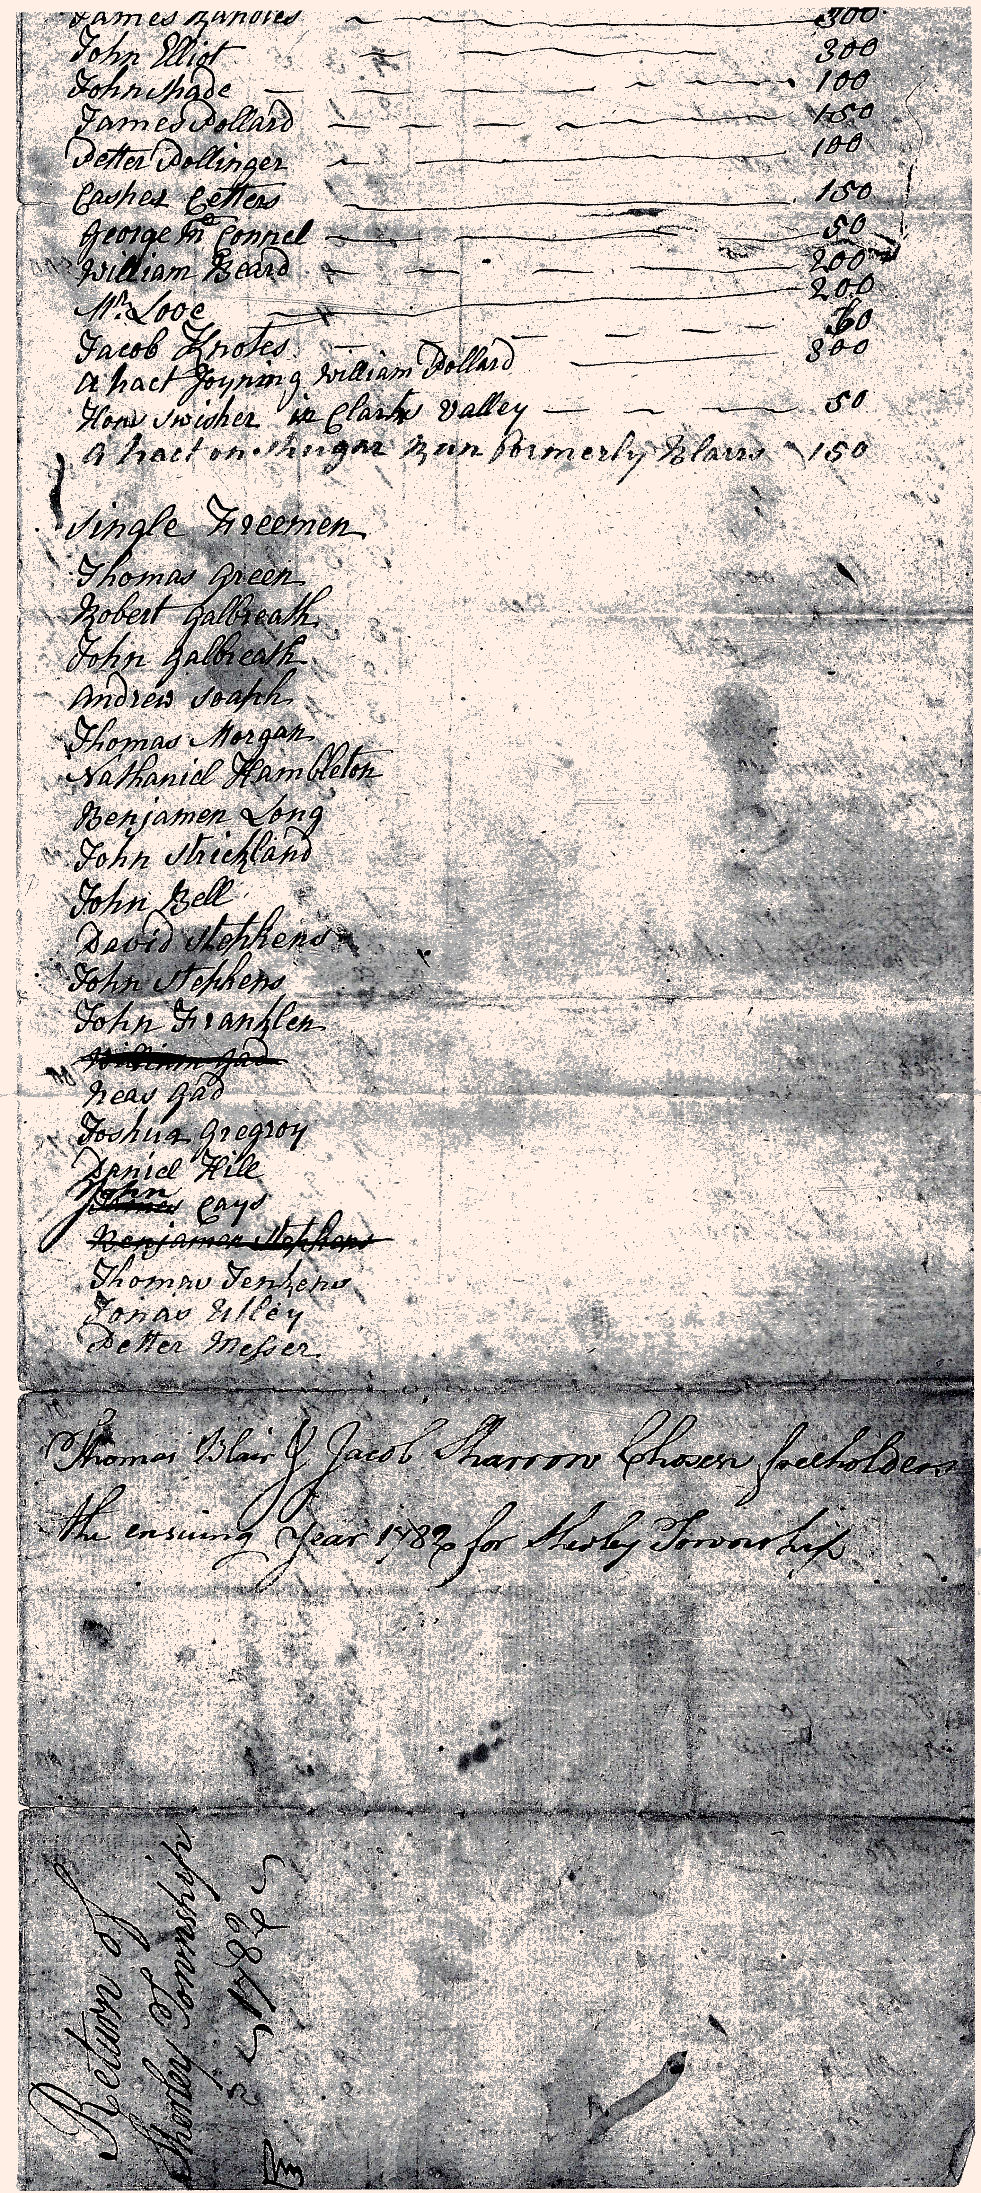 James 300
John Elliot 300
John Shade 100
James Pollard 150
Petter Dollinger 100
Casher Cetters 150
George Mc Connel 50
William Beard 200
Mr. Looe 200
Jacob Knotes 60
a tract Joyning William Pollard 300
How Swisher in Clarks Valley 50
a tract on Shugar Run formerly Blairs 150
Single Freemen
Thomas Green
Robert Galbreath
John Galbreath
Andrew Soaph
Thomas Morgan
Nathaniel Hambleton
Benjamen Long
John Strickland
John Bell
David Stephens
John Stephens
John Franklen
William Gad
Neas Gad
Joshua Gregroy
Daniel Hill
John Cays
Benjamen Stephens
Thomas Jenkens
Jonas
Petter Messer
Thomas Blair & Jacob Sharrow Chosen freeholders
the ensuing Year 1782 for Shirley Township
Return of
Shirley Township
1782